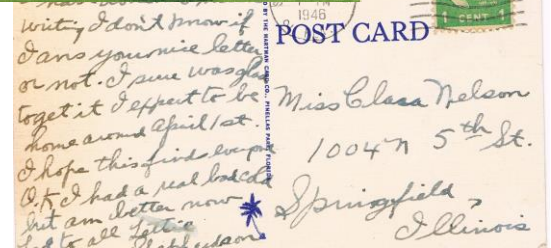 writing I don't know if
I ans your nice letter
or not. I sure was glad
to get it I expect to be
home around April 1st.
I hope this finds everyone
O.K I had a real bad cold
but am better now
to all
1946
POST CARD
1 CENT 1
BY THE HARTMAN CARD CO., PINELLAS PARK, FLORIDA
Miss Clara Nelson
1004 N 5th St.
Springfield,
Illinois